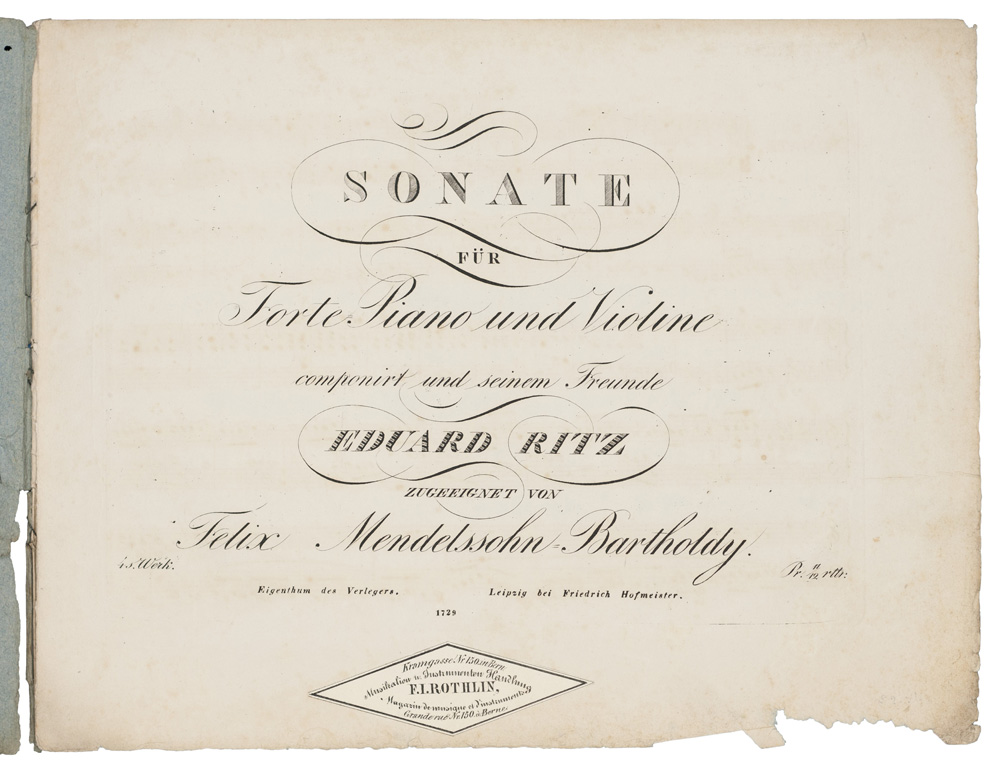 SONATE
FÜR
Forte-Piano und Violine
componirt und seinem Freunde
EDUARD RITZ
ZUGEEIGNET VON
Felix Mendelssohn=Bartholdy.
4s. Werk. Pr. 11/12 rtlr:
Eigenthum des Verlegers. Leipzig bei Friedrich Hofmeister.
1729
Kramgasse Nr. 150. in Bern
Musikalien u. Instrumenten Handlung
F. I. ROTHLIN,
Magazin de musique et d'instruments
Grande rue Nr. 150. à Berne.